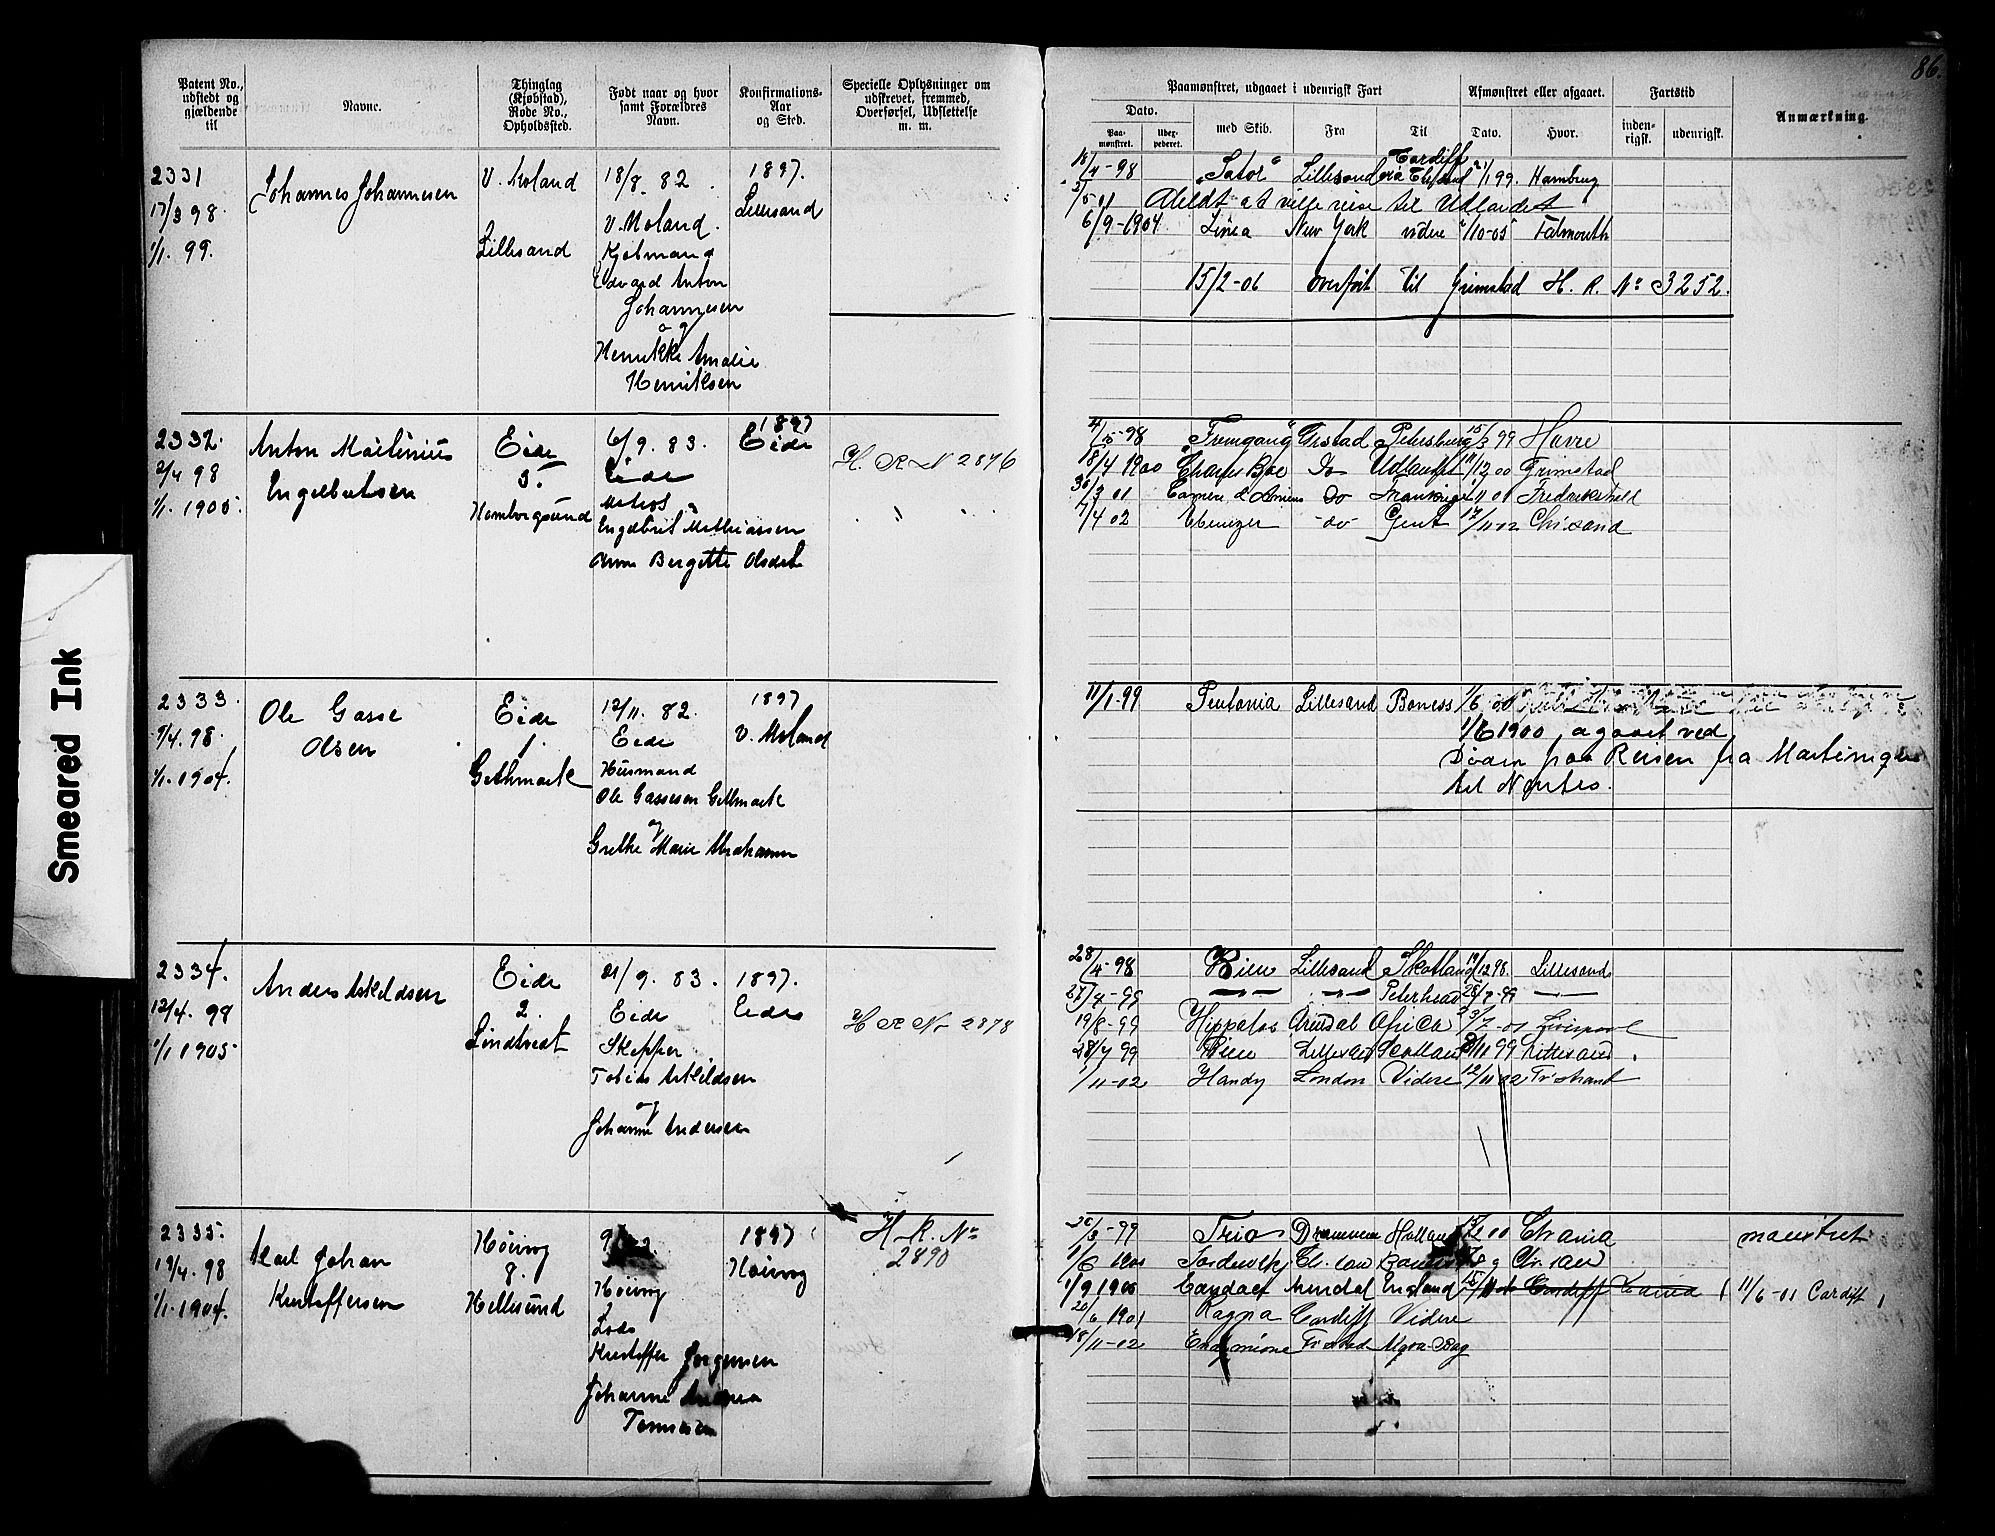 86.
Patent No., udstedt og gjældende til
Navne.
Thinglag (Kjøbstad), Rode No., Opholdssted.
Født naar og hvor samt Forældres Navn.
Konfirmations-Aar og Sted.
Specielle Oplysninger om udskrevet, fremmed, Overførsel, Udslettelse m. m.
Paamønstret, udgaaet i udenrigsk Fart
Afmønstret eller afgaaet.
Fartstid
Anmærkning.
Dato.
Paa-mønstret.
med Skib.
Fra
Til
Dato.
Hvor.
inden-rigsk.
udenrigsk.
2331
17/3 98.
1/1. 99.
Johannes Johannesen
V. Moland
Lillesand
18/8. 82.
V. Moland.
Kjøbmand
Edvard Anton
Johannesen
og
Henrikke Amalie
Henriksen
1897.
Lillesand
18/4-98 "Sator" Lillesand Cardiff via 1/1 99. Hamburg
2/5 01 Meldt at ville reise til Udlandet
6/9-1904 Linea New York videre 1/10-05 Falmouth
15/2-06 overført til Grimstad H. R. No 3252.
2332.
2/4 98
1/1. 1905.
Anton Martinius
Engelbretsen
Eide
5.
Homborgsund
6/9. 83.
Eide
Matros
Engelbret Mathiassen
Anna Bergitte Olsdat
1897
Eide
H. R N 2876
4/5-98 "Fremgang" Grstad Petersburg 15/3 99 Havre
18/4 1900 Charles Bal Do Udlandet 11/12 00 Grimstad
30/3 01 do 11 01 Fredrikshald
7/4 02 Ebenizer -do- Gent 17/11-02 Chrsand
2333.
9/4. 98.
1/1. 1904.
Ole Gasse
Olsen
Eide
1.
Gethmark
12/11. 82.
Eide
Husmand
Ole Gassesen Gethmark
og
Grethe Marie Abrahamsen
1897
V. Moland
11/1-99 Teutonia Lillesand Boness 1/6 00
1/6 1900, agaaet ved
Døden paa Reisen fra Martinique
til Nantes.
2334.
12/4. 98
1/1 1905
Anders Askildsen
Eide
2.
Lindtveit
21/9. 83.
Eide
Skipper
Tobias Askildsen
og
Johanne Andersen
1897.
Eide
H R No 2878
28/4-98 Bien Lillesand Skotland 19/12 98. Lillesand
27/4-99 Peterhead 28/7-99
19/8-99 Hippalos Arendal Africa 23/7-01 Liverpool
28/7 99 Bien Lillesand Scotland 8/11 99 Lillesand.
1/11-02 Handy London Videre 12/11 02 Fr strand
2335.
13/4. 98
1/1. 1904.
Karl Johan
Kristoffersen
Høivåg
8.
Hellesund
9
Høivåg
Lods
Kristoffer Jørgensen
Johanne
Tønnesen
1897
Høivåg
H. R. No
2890
26/3-99 Trio Drammen Holland 00 Chrania
1/6 1900 Chr. sand Chr. sand
1/9 1900 Candace Arendal England Cardiff 11/6-01 Cardiff
20/6 1901 Ragna Cardiff Videre
18/11-02 Endymione Fr strand Algoa Bay
Smeared Ink